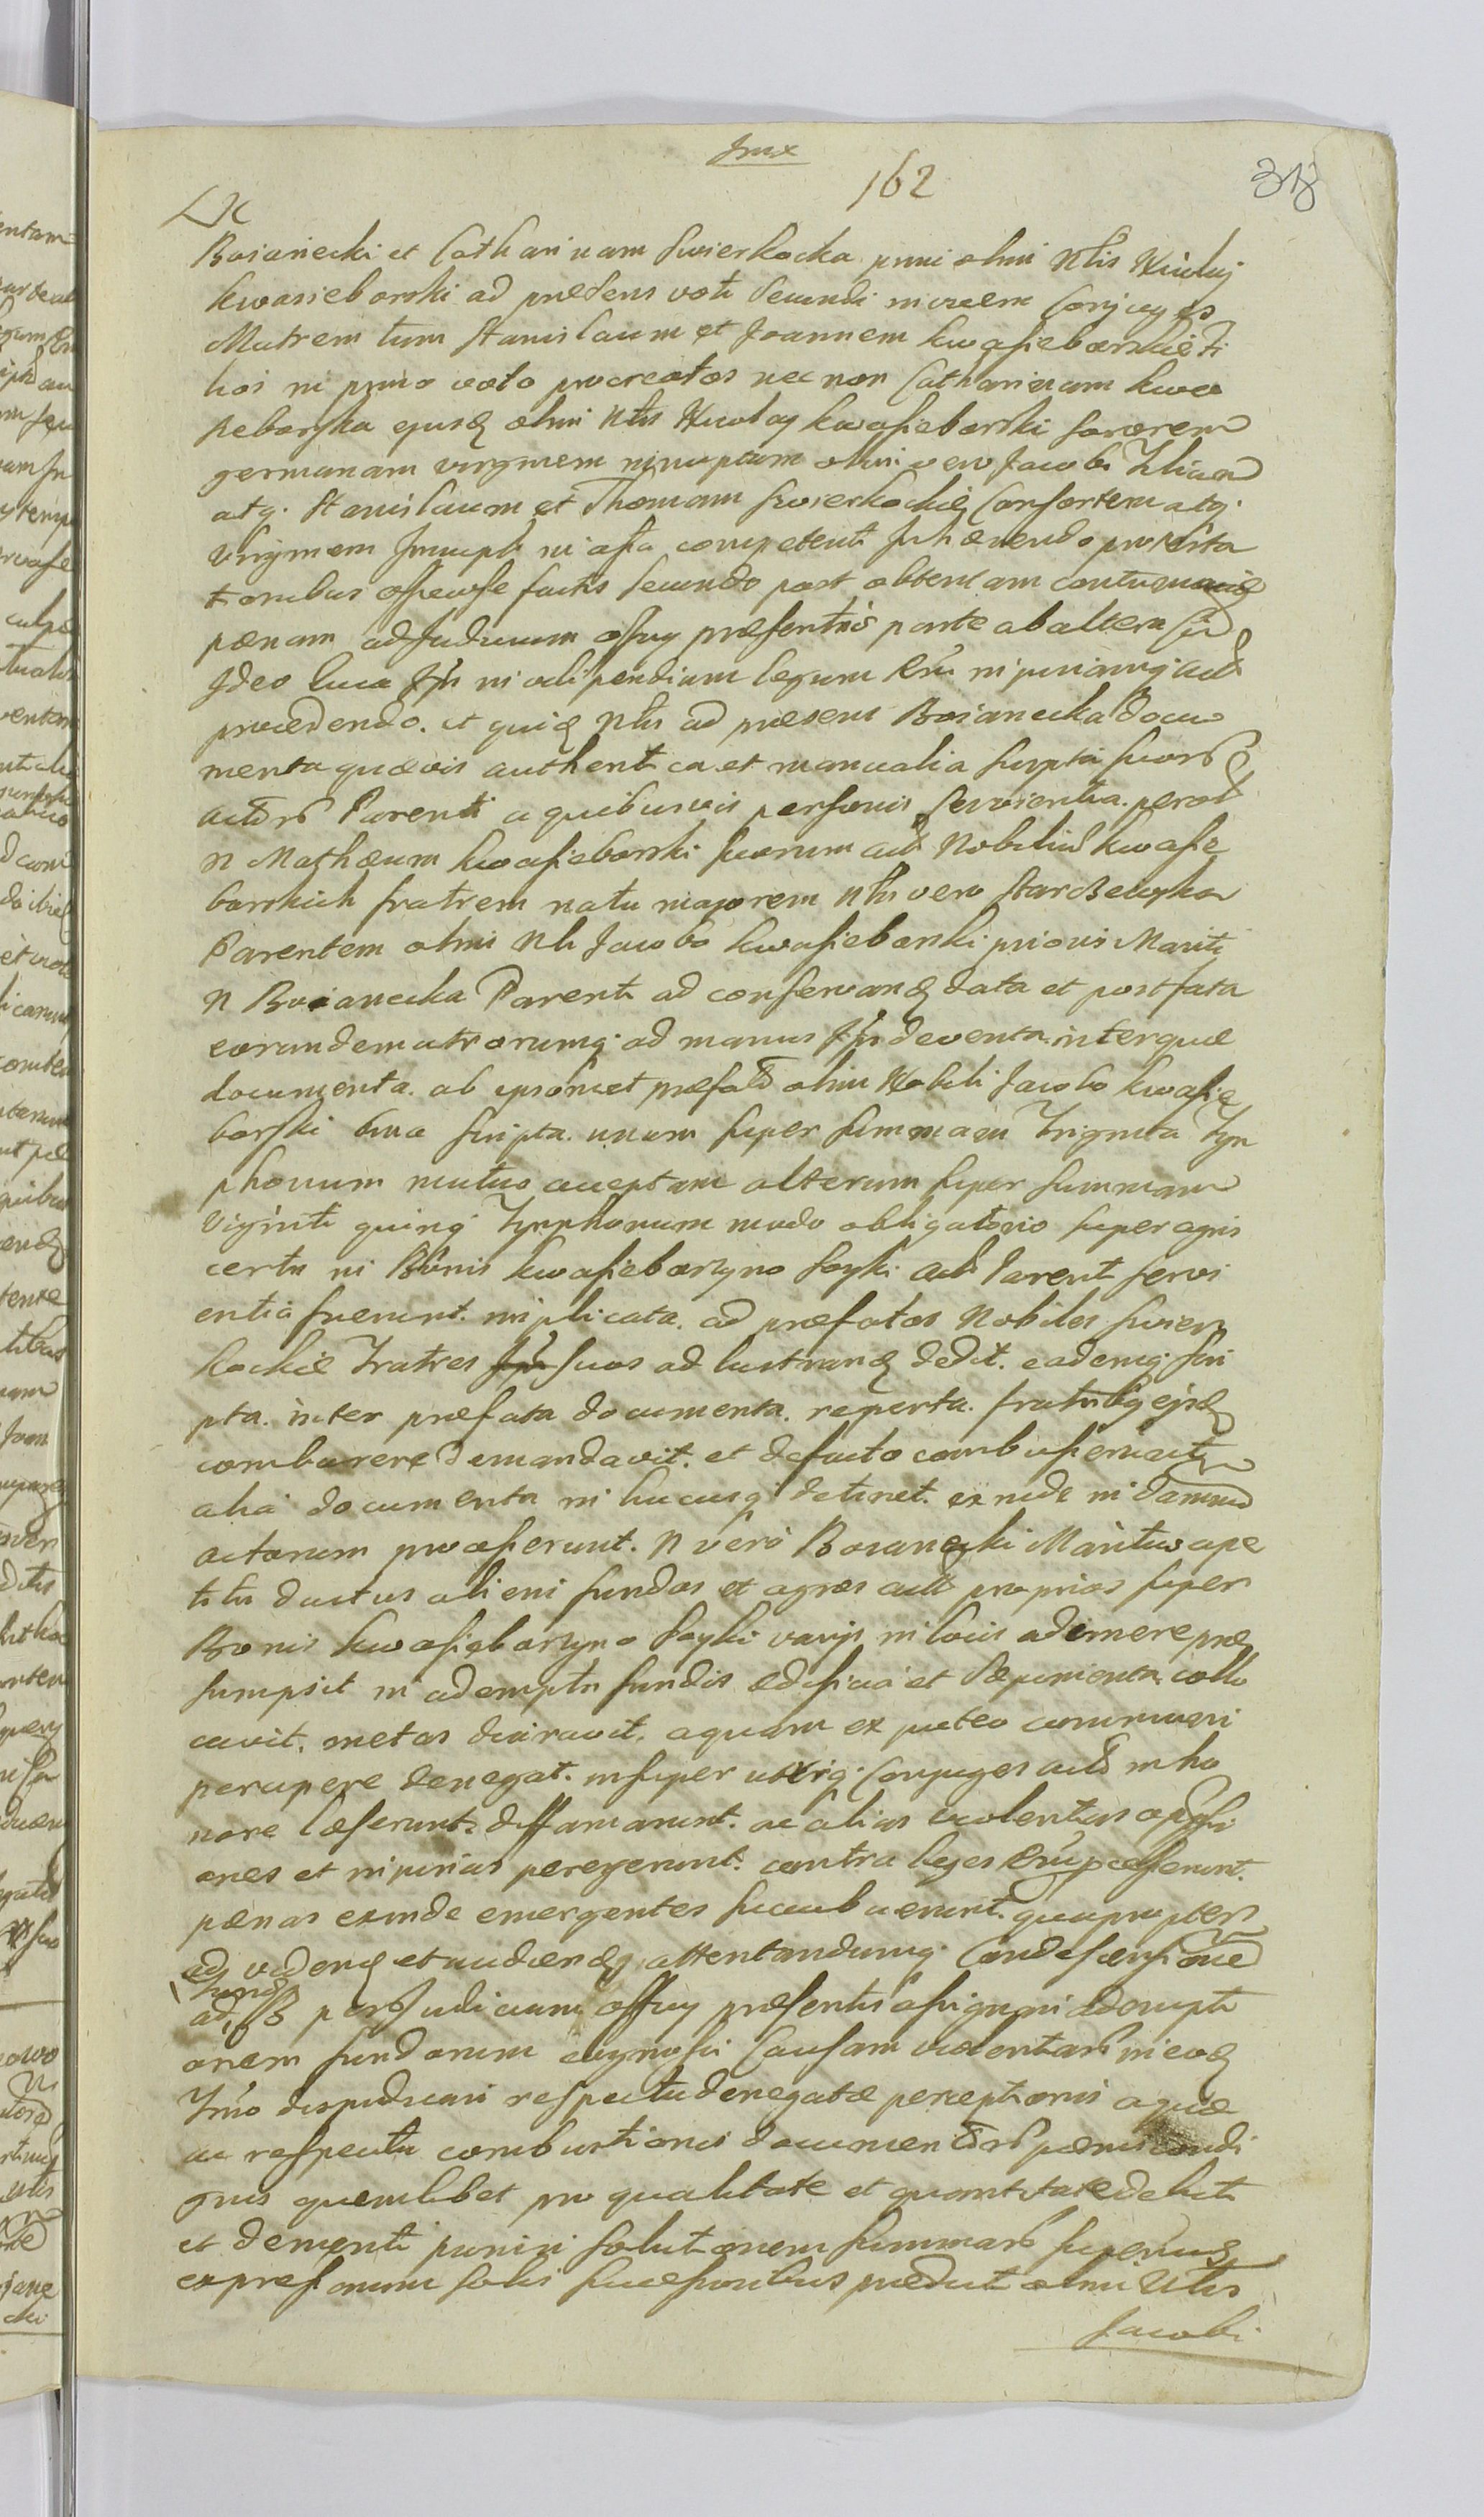 162
318
Boianecki et Catharinam Swierkocka primi olim Nblis Nicolaj
Kwasieborski ad præsens voti Secundi invicem Conjuges
Matrem tum Stanislaum et Joannem Kwasieborskie fi
lios in primo voto procreatos nec non Catharinam Kwa
sieborska ejusq olim Nblis Nicolaj Kwasieborski sororem
germanam virginem innuptam olim vero Jacobi filiam
atq. Stanislaum et Thomam Swierkockie Consortem atq.
Virginem Innupt in assa competenti Inhærendo protesta
tionibus offcose factis Secundo post obtentam contumaciæ
pœnam ad Judicium offwy præsentis parte ab altera
Ideo quia in vilipendium legum injuriamq actt
procedendo. et quia Nblis ad præsens Boianecka Docu
menta quævis authentica et manualia scripta
Parenti a quibusvis personis servientia. per
N Mathæum Kwasieborski suorum actt Nobilium Kwasie
borskich fratrem natu majorem Nblis vero
Parentem olim Nbli Jacobo Kwasieborski prioris Mariti
N Boianecka Parenti ad conservanq data et post fata
eorundem utrorumq. ad manus deventa. inter quæ
documenta. ab ipsomet præfato olim Nobili Jacobo Kwasie
borski bina scripta. unum super summam Triginta Tyn
phonum mutuo acceptam alterum super summam
Viginti quinq Tynphonum modo obligatorio super agris
certis in Bonis Kwasieborzyno Soyki actt Parenti servi
entia fuerunt. implicata. ad præfatos Nobiles Swier
kockie Fratres suos ad lustranq dedit. eademq scri
pta. inter præfata documenta. reperta. fratribq ejusq
comburere demandavit. et defacto combusserunt
alia documenta in hucusq detinet. exinde in damnu
actorum processerunt. N vero Boianecki Maritus ape
titu ductus alieni fundos et agros actt proprios super
Bonis Kwasieborzyno Soyki varijs in locis adimere præ
sumpsit in ademptis fundis ædificia et Sepimenta collo
cavit. metas disiravit. aquam ex puteo communi
percipere denegat. insuper utriq. Conjuges actt in ho
nore læserunt. diffamarunt. ac alias violentias oppssi
ones et injurias peregerunt. contra leges processerunt.
pœnas exinde emergentes succubuerunt. quapropter
ad videnq et audienq attentandumq. Condescensionem
ad, fundos per Judicium offwy præsentis assignari adempti
onem fundorum cognosci Causam violentiarum in eoq
Tmo dijudicari respectu denegatæ perceptionis aquæ
ac respectu combustionis documentorum pœnis condi
gnis quemlibet pro qualitate et quantitate delicti
et demeriti puniri solutionem summarum superius
expressarum solis successoribus prædicti olim Nblis
Jacobi